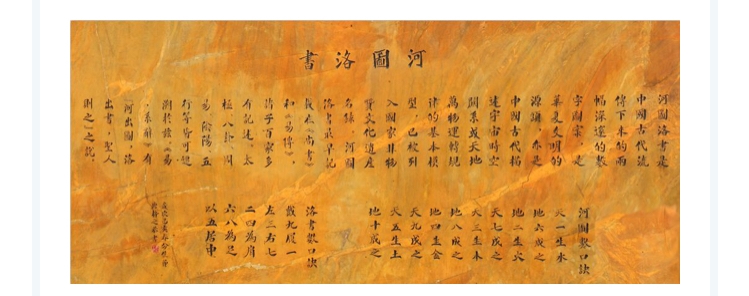 河圖洛書
河圖洛書是
中國古代流
傳下來的兩
幅深奧的數
字圖案，是
華夏文明的
源頭，亦是
中國古代構
建宇宙時空
關系或天地
萬物運轉規
律的基本模
型，已被列
入國家非物
質文化遺產
名錄。河圖
洛書最早記
載在《尚書》
和《易傳》，
諸子百家多
有記述。太
極、八卦、周
易、陰陽五
行等皆可追
溯於此《易
·系辭》有
“河出圖，洛
出書，聖人
則之”之說。
河圖數口訣
天一生水
地六成之
地二生火
天七成之
天三生木
地八成之
地四生金
天九成之
天五生土
地十成之
洛書數口訣
戴九履一
左三右七
二四為肩
六八為足
以五居中